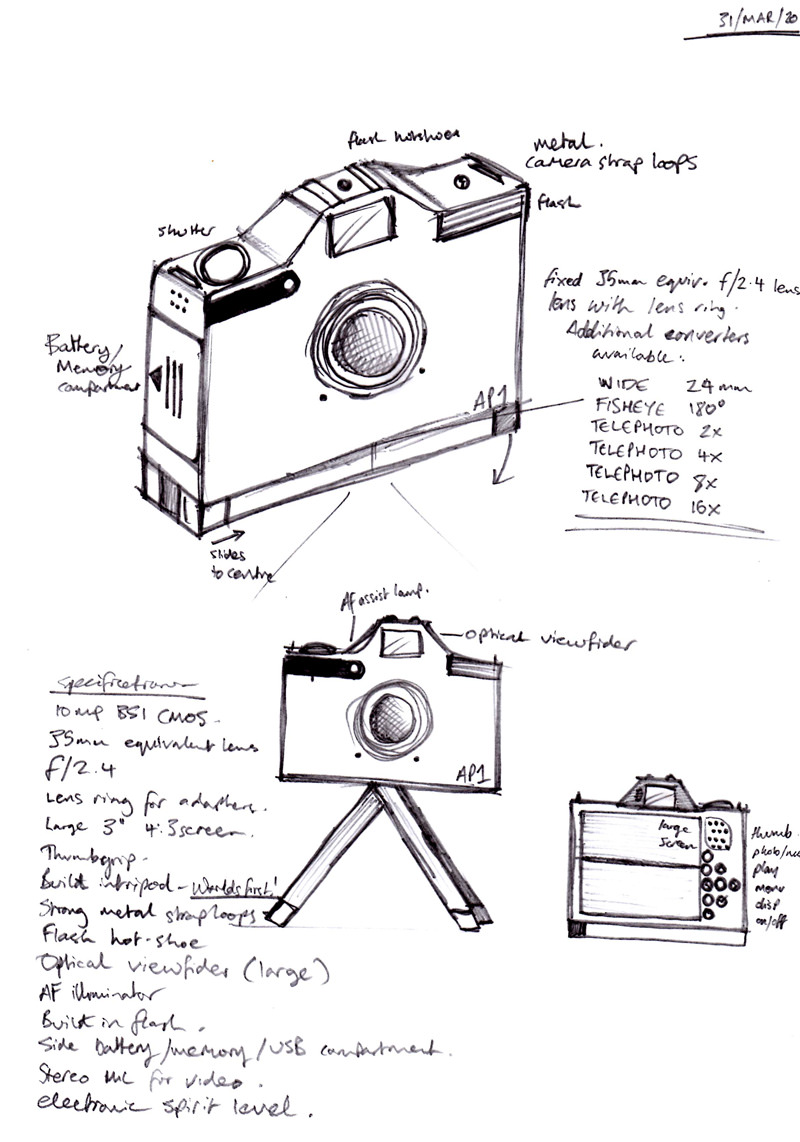 31/MAR/20
flash hotshoe
metal.
camera strap loops
flash
shutter
fixed 35mm equiv. f/2.4 lens
lens with lens ring.
Additional converters
available.
Battery/
Memory
compartment
WIDE 24mm
FISHEYE 180°
TELEPHOTO 2x
TELEPHOTO 4x
TELEPHOTO 8x
TELEPHOTO 16x
AP1
slides
to centre
AF assist lamp.
optical viewfider
AP1
Specifications
10mp BSI CMOS.
35mm equivalent lens
f/2.4
Lens ring for adapters.
Large 3" 4:3 screen.
Thumbgrip.
Built in tripod - Worlds first!
Strong metal strap loops
Flash hot-shoe
Optical viewfider (large)
AF illuminator
Built in flash.
Side battery/memory/USB compartment.
Stereo mic for video.
electronic spirit level.
large
screen
thumb
photo/
play
menu
disp
on/off